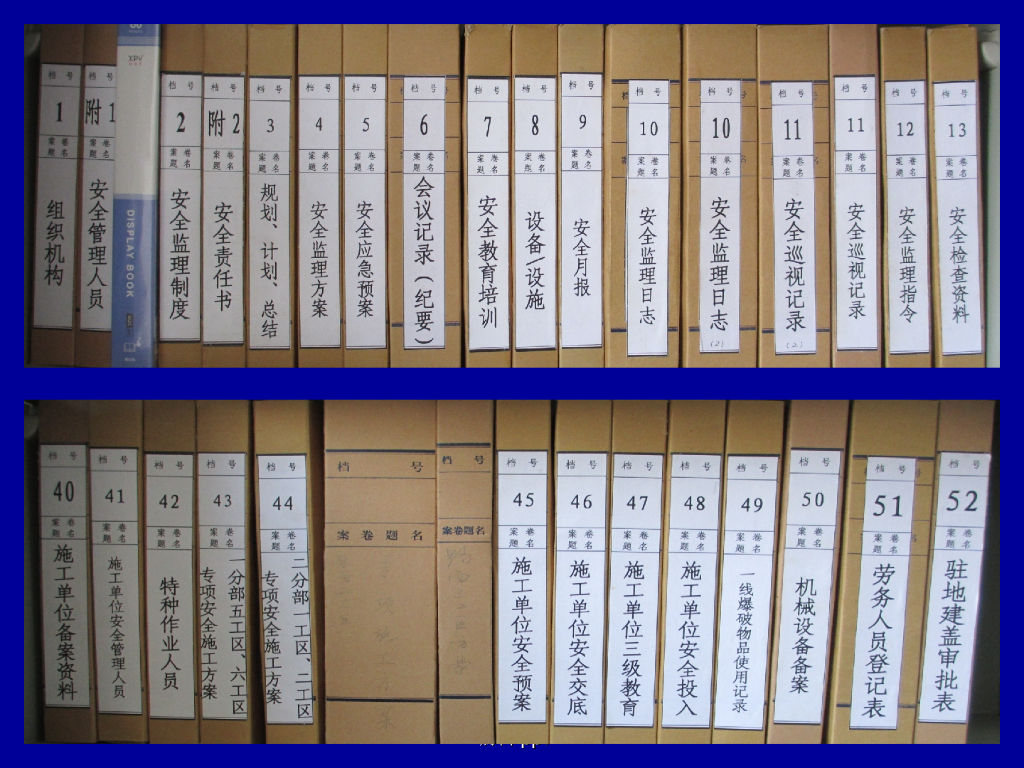 档 号
1
案卷题名
组织机构
档 号
附 1
案卷题名
安全管理人员
XPV
DISPLAY BOOK
档 号
2
案卷题名
安全监理制度
档 号
附 2
案卷题名
安全责任书
档 号
3
案卷题名
规划、计划、总结
档 号
4
案卷题名
安全监理方案
档 号
5
案卷题名
安全应急预案
档 号
6
案卷题名
会议记录（纪要）
档 号
7
案卷题名
安全教育培训
档 号
8
案卷题名
设备\设施
档 号
9
案卷题名
安全月报
档 号
10
案卷题名
安全监理日志
档 号
10
案卷题名
安全监理日志
(2)
档 号
11
案卷题名
安全巡视记录
(2)
档 号
11
案卷题名
安全巡视记录
档 号
12
案卷题名
安全监理指令
档 号
13
案卷题名
安全检查资料
档 号
40
案卷题名
施工单位备案资料
档 号
41
案卷题名
施工单位安全管理人员
档 号
42
案卷题名
特种作业人员
档 号
43
案卷题名
一分部五工区、六工区
专项安全施工方案
档 号
44
案卷题名
三分部一工区、二工区
专项安全施工方案
档 号
案卷题名
档 号
案卷题名
档 号
45
案卷题名
施工单位安全预案
档 号
46
案卷题名
施工单位安全交底
档 号
47
案卷题名
施工单位三级教育
档 号
48
案卷题名
施工单位安全投入
档 号
49
案卷题名
一线爆破物品使用记录
档 号
50
案卷题名
机械设备备案
档 号
51
案卷题名
劳务人员登记表
档 号
52
案卷题名
驻地建盖审批表